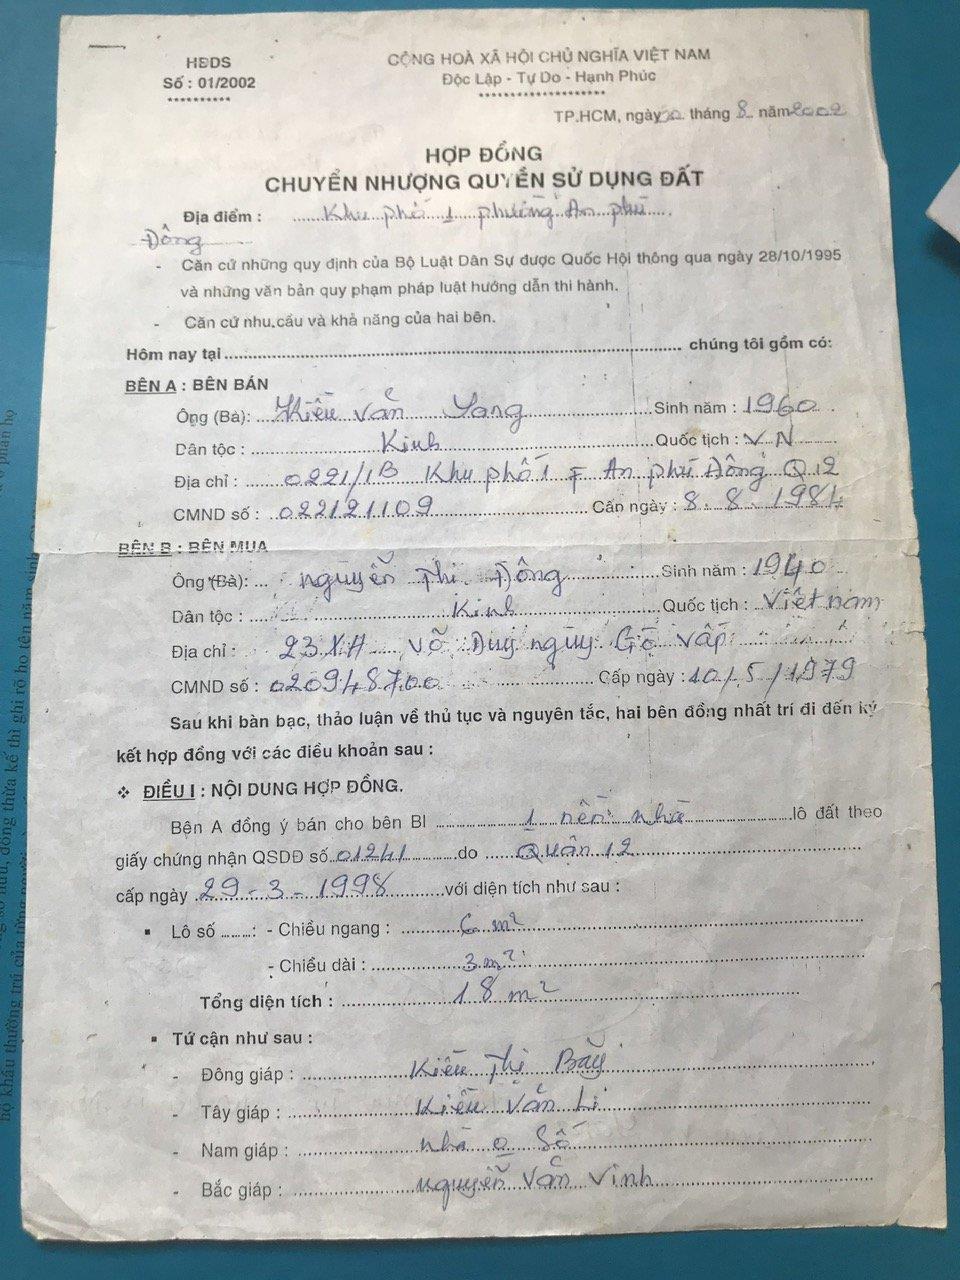 HĐDS
Số : 01/2002
**********
CỘNG HOÀ XÃ HỘI CHỦ NGHĨA VIỆT NAM
Độc Lập - Tự Do - Hạnh Phúc
********************
TP.HCM, ngày 20 tháng 8 năm 2002
HỢP ĐỒNG
CHUYỂN NHƯỢNG QUYỀN SỬ DỤNG ĐẤT
Địa điểm : Khu phố 1 phường An phú
Đông
- Căn cứ những quy định của Bộ Luật Dân Sự được Quốc Hội thông qua ngày 28/10/1995
và những văn bản quy phạm pháp luật hướng dẫn thi hành.
- Căn cứ nhu cầu và khả năng của hai bên.
Hôm nay tại ........ chúng tôi gồm có:
BÊN A : BÊN BÁN
Ông (Bà): Kiều Văn Sinh năm : 1960
Dân tộc : Kinh Quốc tịch : VN
Địa chỉ : 0221/1B Khu phố 1 F An phú Đông Q12
CMND số : 022121109 Cấp ngày : 8.8.1984
BÊN B : BÊN MUA
Ông (Bà): nguyễn thị Đông Sinh năm : 1940
Dân tộc : Kinh Quốc tịch : Việt nam
Địa chỉ : 23 Võ Duy nguy Gò vấp
CMND số : 020948700 Cấp ngày : 10/5/1979
Sau khi bàn bạc, thảo luận về thủ tục và nguyên tắc, hai bên đồng nhất trí đi đến ký
kết hợp đồng với các điều khoản sau :
❖ ĐIỀU I : NỘI DUNG HỢP ĐỒNG.
Bên A đồng ý bán cho bên BI 1 nền nhà lô đất theo
giấy chứng nhận QSDĐ số 01241 do Quận 12
cấp ngày 29-3-1998 với diện tích như sau :
▪ Lô số ........: - Chiều ngang : 6 m²
- Chiều dài : 3 m²
Tổng diện tích : 18 m²
▪ Tứ cận như sau :
- Đông giáp : Kiều Thị Bảy
- Tây giáp : Kiều Văn Li
- Nam giáp : nhà Số
- Bắc giáp : nguyễn Văn Vinh